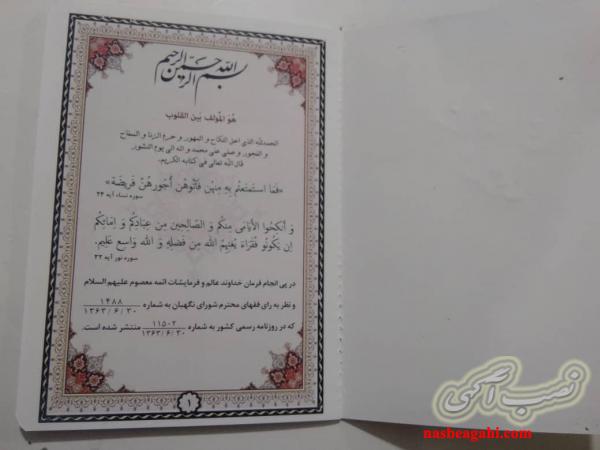 بسم الله الرحمن الرحیم
هُوَ المُولف بَین القلوب
الحمدلله الذی احل النکاح و المهور و حرم الزنا و السفاح
و الفجور و صلی علی محمد و اله الی یوم النشور
قال الله تعالی فی کتابه الکریم.
«فَمَا استَمتَعتُم بِهِ مِنهُن فَآتُوهُن أُجورَهُنَّ فَریضَة»
سوره نساء آیه ۲۴
وَ أنکِحُوا الأیَامَی مِنکُم وَ الصَّالِحِینَ مِن عِبَادِکُم وَ إمَائِکُم
إن یَکُونُو فُقَرَاءَ یُغنِهِمُ اللّه مِن فَضلِهِ وَ اللّه وَاسِعٌ عَلِیم.
سوره نور آیه ۳۲
در پی انجام فرمان خداوند عالم و فرمایشات ائمه معصوم علیهم السلام
و نظر به رای فقهای محترم شورای نگهبان به شماره ۱۴۸۸ ۱۳۶۳/۶/۳۰
که در روزنامه رسمی کشور به شماره ۱۱۵۰۲ ۱۳۶۳/۶/۳۰ منتشر شده است.
۱
نصب آگهی
nasbeagahi.com